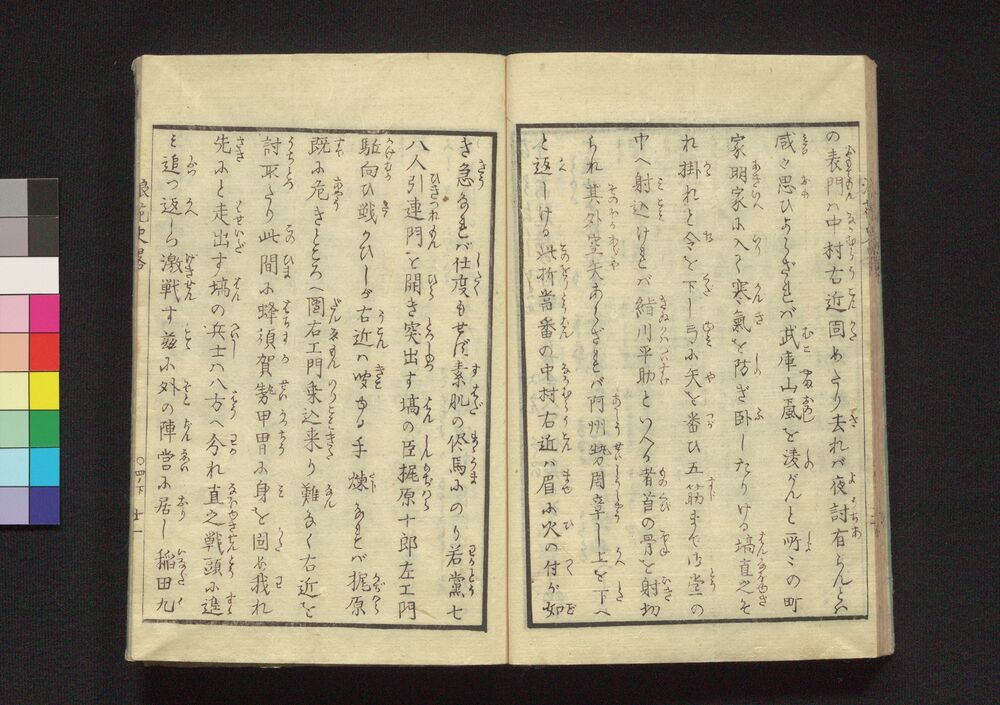 の表門ハ中村右近固めたり去れバ夜討有らんとハ
咸々思ひよらざれバ武庫山颪を凌がんと所々の町
家明家に入りて寒氣を防ぎ卧したりける塙直之そ
れ掛れと令を下し弓に矢を番ひ五筋まで御堂の
中へ射込けれバ鮨川平助といへる者首の骨を射切
られ其外空矢あらざれバ阿州勢周章し上を下へ
と返しける此折當番の中村右近ハ眉に火の付が如
き急なれバ仕度もせず素肌の侭馬にのり若黨七
八人引連門を開き突出す塙の臣梶原十郎左エ門
駈向ひ戦ひしが右近ハ
手煉なれバ梶原
既に危きところへ團右エ門乗込来り難なく右近を
討取たり此間に蜂須賀勢甲冑に身を固め我れ
先にと走出す塙の兵士ハ八方へ分れ直之戦頭に進
ミ追つ返しつ激戦す茲に外の陣営に居し稲田九
浪花史畧
〇四ノ下
十一